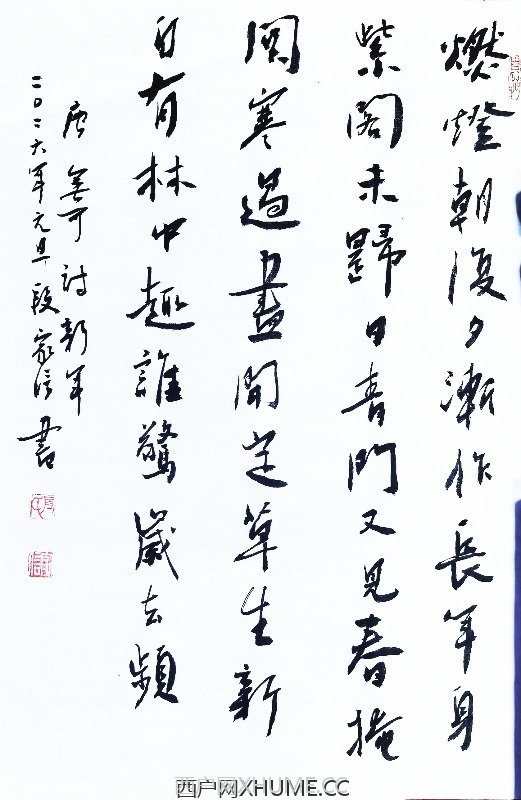 燃燈朝復夕漸作長年身
紫閣未歸日青門又見春掩
關寒過盡開定草生新
自有林中趣誰驚歲去頻
唐無可詩新年
二〇二六年元旦段家信書
西户网XHUME.CC